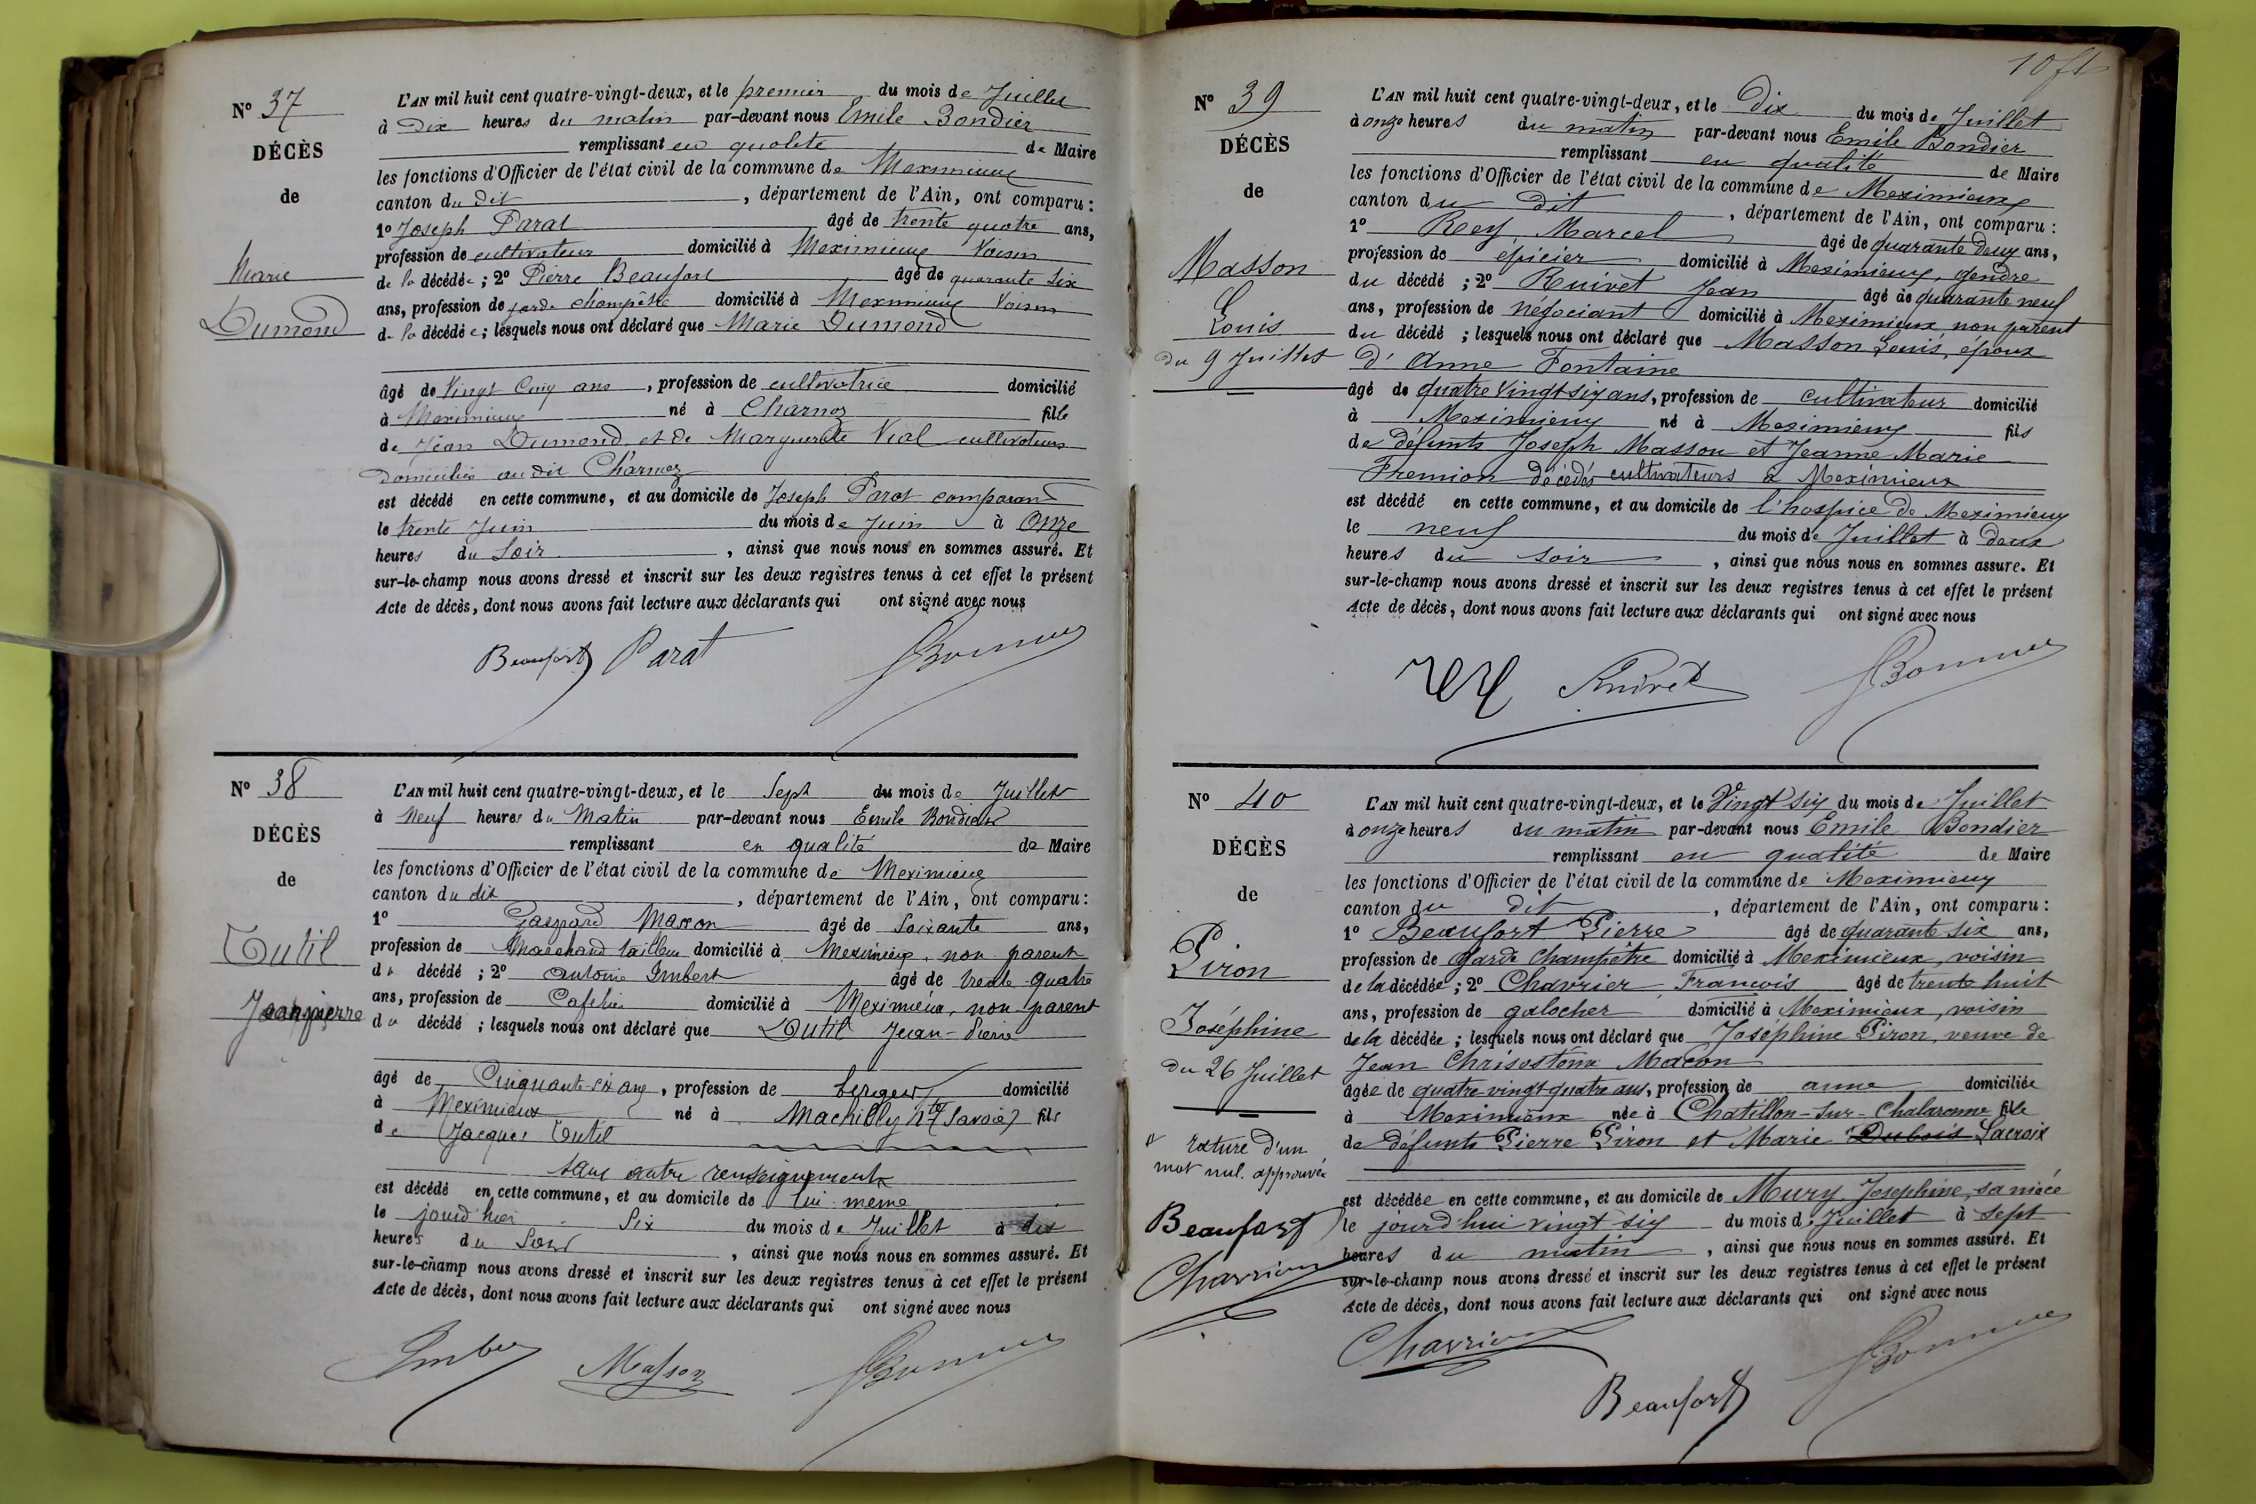 N° 37
DÉCÈS
de
Marie
Dumond
L'AN mil huit cent quatre-vingt-deux, et le premier du mois de Juillet
à Dix heures du matin par-devant nous Emile Bondier
remplissant en qualité de Maire
les fonctions d'Officier de l'état civil de la commune de Meximieux
canton du dit , département de l'Ain, ont comparu :
1° Joseph Parat âgé de trente quatre ans,
profession de cultivateur domicilié à Meximieux Voisin
de la décédée ; 2° Pierre Beaufort âgé de quarante six
ans, profession de garde champêtre domicilié à Meximieux Voisin
de la décédée ; lesquels nous ont déclaré que Marie Dumond
âgé de Vingt Cinq ans , profession de cultivatrice domicilié
à Meximieux né à Charnoz fille
de Jean Dumond et de Marguerite Vial cultivateurs
Domiciliés au dit Charnoz
est décédé en cette commune, et au domicile de Joseph Parat comparant
le trente Juin du mois de Juin à Onze
heures du Soir , ainsi que nous nous en sommes assuré. Et
sur-le-champ nous avons dressé et inscrit sur les deux registres tenus à cet effet le présent
Acte de décès, dont nous avons fait lecture aux déclarants qui ont signé avec nous
Beaufort Parat
N° 38
DÉCÈS
de
Tutil
Jean pierre
L'AN mil huit cent quatre-vingt-deux, et le Sept du mois de Juillet
à Neuf heures du Matin par-devant nous Emile Bondier
remplissant en qualité de Maire
les fonctions d'Officier de l'état civil de la commune de Meximieux
canton du dit , département de l'Ain, ont comparu :
1° Gaspard Masson âgé de Soixante ans,
profession de Marchand tailleur domicilié à Meximieux, non parent
du décédé ; 2° Antoine Imbert âgé de trente quatre
ans, profession de Cafetier domicilié à Meximieux, non parent
du décédé ; lesquels nous ont déclaré que Tutil Jean-Pierre
âgé de Cinquante six ans , profession de berger domicilié
à Meximieux né à Machilly (hte Savoie) fils
de Jacques Tutil
sans autre renseignements
est décédé en cette commune, et au domicile de lui même
le jourd'hier Six du mois de Juillet à dix
heures du Soir , ainsi que nous nous en sommes assuré. Et
sur-le-champ nous avons dressé et inscrit sur les deux registres tenus à cet effet le présent
Acte de décès, dont nous avons fait lecture aux déclarants qui ont signé avec nous
Imbert Masson
N° 39
DÉCÈS
de
Masson
Louis
du 9 Juillet
L'AN mil huit cent quatre-vingt-deux, et le Dix du mois de Juillet
à onze heures du matin par-devant nous Emile Bondier
remplissant en qualité de Maire
les fonctions d'Officier de l'état civil de la commune de Meximieux
canton du dit , département de l'Ain, ont comparu :
1° Rey Marcel âgé de quarante deux ans,
profession de épicier domicilié à Meximieux, gendre
du décédé ; 2° Ruivet Jean âgé de quarante neuf
ans, profession de négociant domicilié à Meximieux, non parent
du décédé ; lesquels nous ont déclaré que Masson Louis, époux
d'Anne Fontaine
âgé de quatre vingt six ans, profession de cultivateur domicilié
à Meximieux né à Meximieux fils
de défunts Joseph Masson et Jeanne Marie
Fremion décédés cultivateurs à Meximieux
est décédé en cette commune, et au domicile de l'hospice de Meximieux
le neuf du mois de Juillet à deux
heures du soir , ainsi que nous nous en sommes assuré. Et
sur-le-champ nous avons dressé et inscrit sur les deux registres tenus à cet effet le présent
Acte de décès, dont nous avons fait lecture aux déclarants qui ont signé avec nous
Rey Ruivet
N° 40
DÉCÈS
de
Piron
Joséphine
du 26 Juillet
rature d'un
mot nul. approuvée
Beaufort
Charrier
L'AN mil huit cent quatre-vingt-deux, et le Vingt six du mois de Juillet
à onze heures du matin par-devant nous Emile Bondier
remplissant en qualité de Maire
les fonctions d'Officier de l'état civil de la commune de Meximieux
canton du dit , département de l'Ain, ont comparu :
1° Beaufort Pierre âgé de quarante six ans,
profession de garde champêtre domicilié à Meximieux, voisin
de la décédée ; 2° Charrier François âgé de trente huit
ans, profession de galocher domicilié à Meximieux, voisin
de la décédée ; lesquels nous ont déclaré que Joséphine Piron, veuve de
Jean Chrisostôme Macon
âgée de quatre vingt quatre ans, profession de domiciliée
à Meximieux née à Chatillon-sur-Chalaronne fille
de défunts Pierre Piron et Marie Dubois Lacroix
est décédée en cette commune, et au domicile de Mury Josephine, sa nièce
le jourd'hui vingt six du mois de Juillet à sept
heures du matin , ainsi que nous nous en sommes assuré. Et
sur-le-champ nous avons dressé et inscrit sur les deux registres tenus à cet effet le présent
Acte de décès, dont nous avons fait lecture aux déclarants qui ont signé avec nous
Charrier
Beaufort